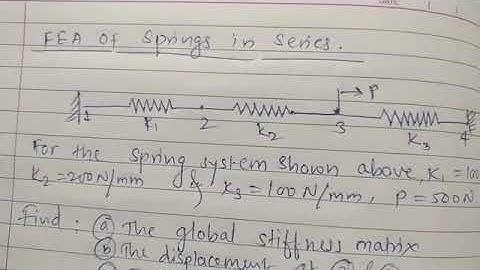 FEA Of Springs in Series.
P
1 K₁ 2 K₂ 3 K₃ 4
For the spring system shown above, K₁ = 100
K₂=200N/mm & K₃ = 100 N/mm, P = 500N
find: (a) The global stiffness matrix
(b) The displacement at